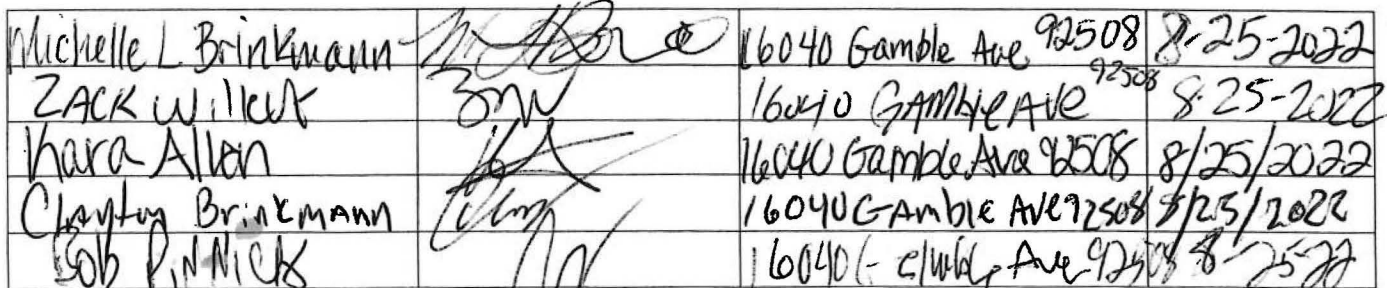 Michelle L Brinkmann 16040 Gamble Ave 92508 8-25-2022
ZACK Willcut 16040 GAMble AVE 92508 8-25-2022
Kara Allen 16040 Gamble Ave 92508 8/25/2022
Clayton Brinkmann 16040 GAmble AVE 92508 8/25/2022
Bob PiNNick 16040 Ave 92508 8-25-22